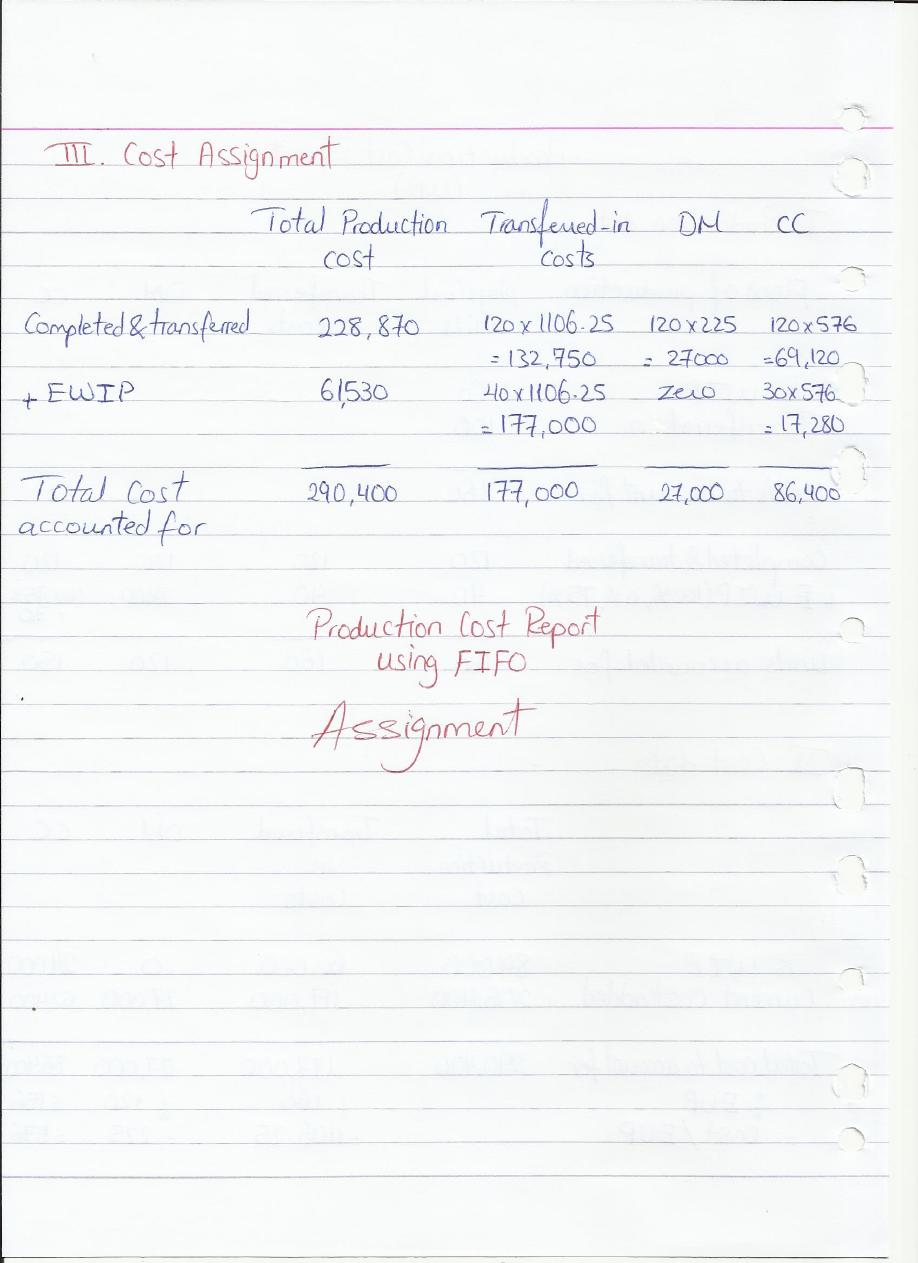 III. Cost Assignment
Total Production Transferred-in DM CC
cost costs
Completed & transferred 228,870 120 x 1106.25 120 x 225 120 x 576
= 132,750 = 27000 = 69,120
+ EWIP 61,530 40 x 1106.25 zero 30 x 576
= 177,000 = 17,280
Total Cost 290,400 177,000 27,000 86,400
accounted for
Production Cost Report
using FIFO
Assignment